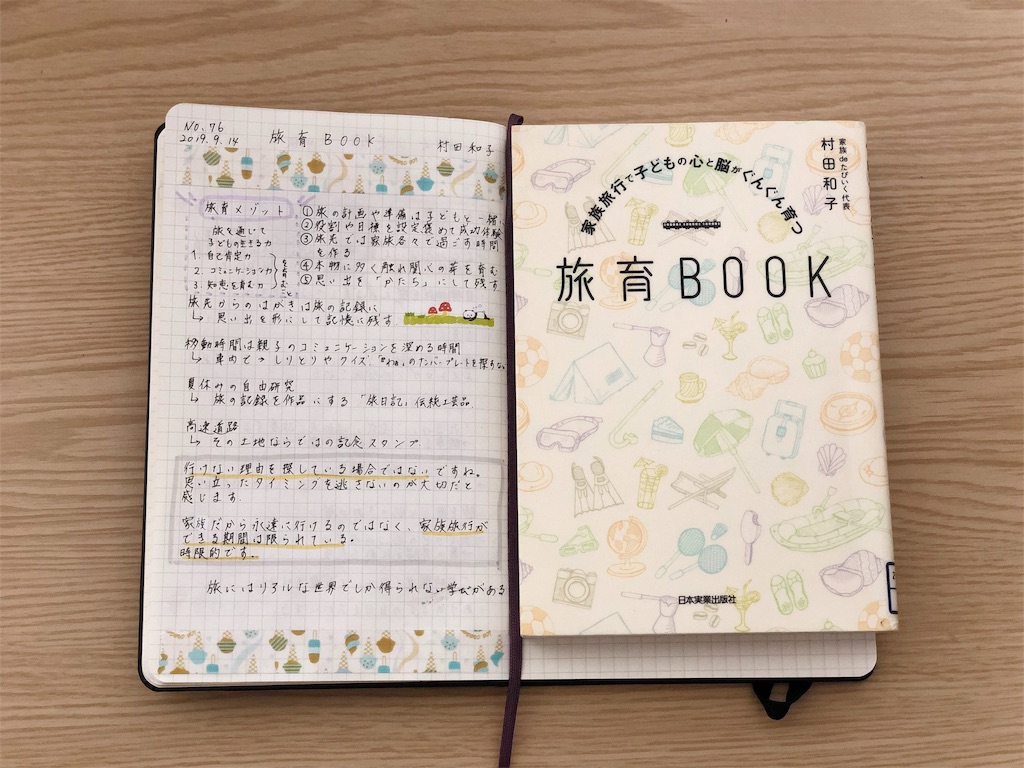 No.76
2019.9.14
旅育BOOK
村田和子
旅育メソッド
旅を通じて
子どもの生きる力
1. 自己肯定力
2. コミュニケーション力
3. 知恵を育む力
を育むこと
①旅の計画や準備は子どもと一緒
②役割や目標を設定褒めて成功体験
③旅先では家族各々で過ごす時間
を作る
④本物に多く触れ関心の芽を育む
⑤思い出を「かたち」にして残す
旅先からのはがきは旅の記録に
↳ 思い出を形にして記憶に残す
移動時間は親子のコミュニケーションを深める時間
↳ 車内でのしりとりやクイズ、「わ」のナンバープレートを探すなど
夏休みの自由研究
↳ 旅の記録を作品にする「旅日記」伝統工芸品
高速道路
↳ その土地ならではの記念スタンプ
行けない理由を探している場合ではないですね。
思い立ったタイミングを逃さないのが大切だと
感じます
家族だから永遠に行けるのではなく、家族旅行が
できる期間は限られている。
時限的です。
旅にはリアルな世界でしか得られない学びがある
家族旅行で子どもの心と脳がぐんぐん育つ
家族deたびいく代表
村田和子
旅育BOOK
日本実業出版社